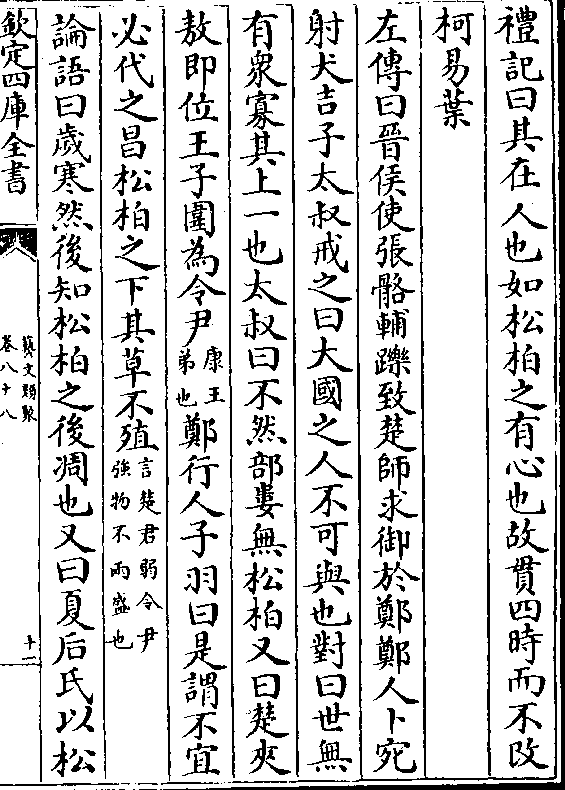 禮記曰其在人也如松柏之有心也故貫四時而不改
柯易葉
左傳曰晉侯使張骼輔躒致楚師求御於鄭鄭人卜宛
射犬吉子太叔戒之曰大國之人不可與也對曰世無
有衆寡其上一也太叔曰不然部婁無松柏又曰楚夾
敖即位王子圍為令尹康王弟也鄭行人子羽曰是謂不宜
必代之昌松柏之下其草不殖言楚君弱令尹強物不兩盛也
論語曰歲寒然後知松柏之後凋也又曰夏后氏以松
欽定四庫全書
藝文類聚
卷八十八
十二